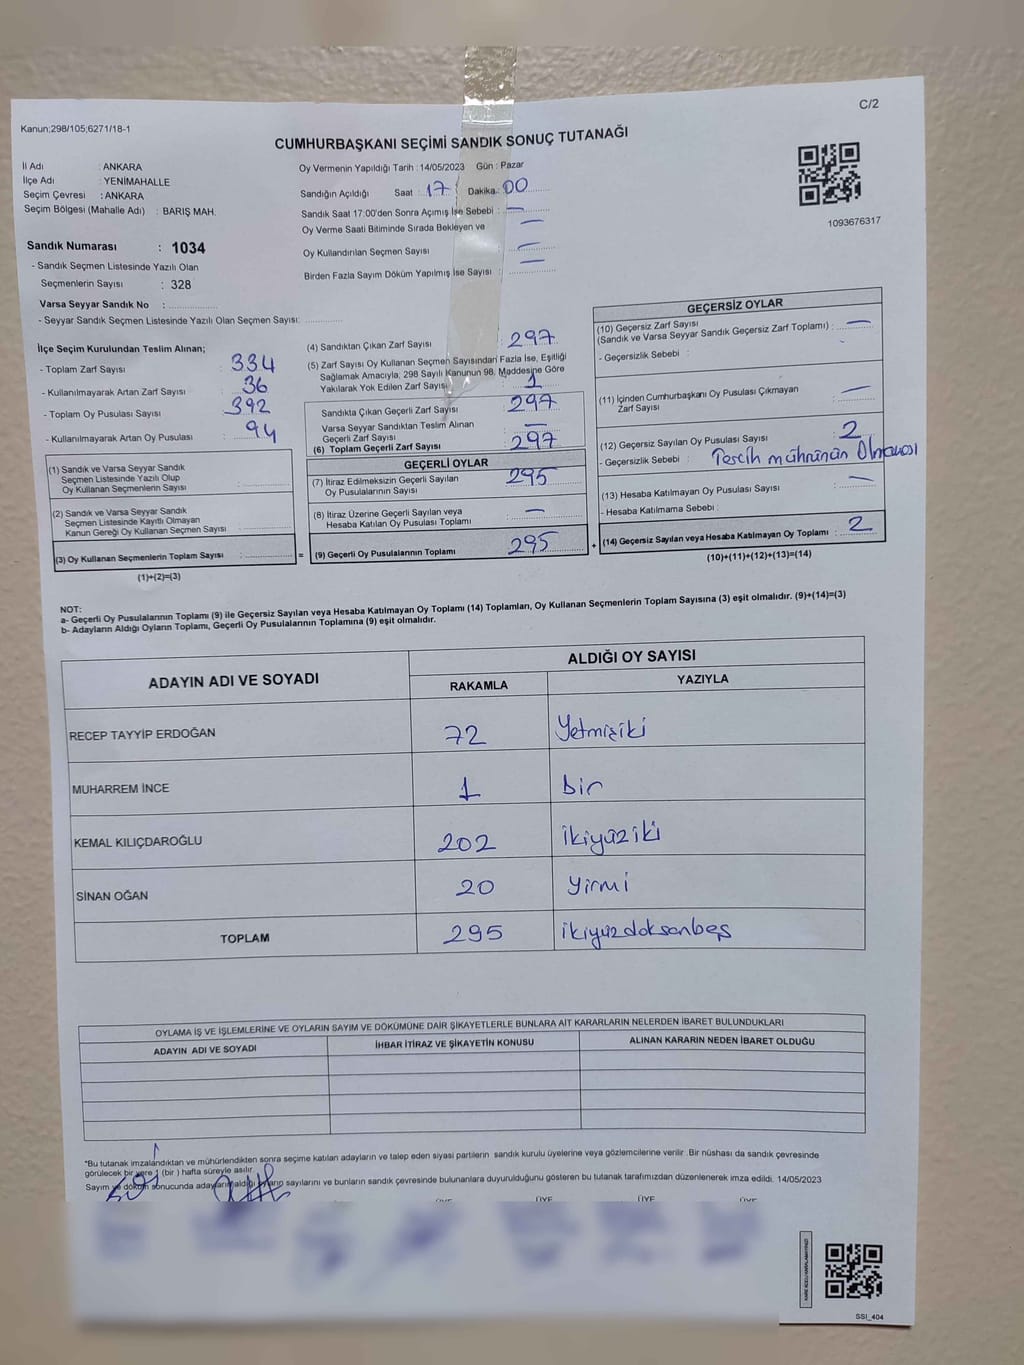 C/2
Kanun;298/105;6271/18-1
CUMHURBAŞKANI SEÇİMİ SANDIK SONUÇ TUTANAĞI
İl Adı : ANKARA
İlçe Adı : YENİMAHALLE
Seçim Çevresi : ANKARA
Seçim Bölgesi (Mahalle Adı) : BARIŞ MAH.
Oy Vermenin Yapıldığı Tarih : 14/05/2023 Gün : Pazar
Sandığın Açıldığı Saat : 17 Dakika : 00
Sandık Saat 17:00'den Sonra Açımış İse Sebebi : —
Oy Verme Saati Bitiminde Sırada Bekleyen ve —
Oy Kullandırılan Seçmen Sayısı : —
Birden Fazla Sayım Döküm Yapılmış İse Sayısı : —
1093676317
Sandık Numarası : 1034
- Sandık Seçmen Listesinde Yazılı Olan
Seçmenlerin Sayısı : 328
Varsa Seyyar Sandık No :
- Seyyar Sandık Seçmen Listesinde Yazılı Olan Seçmen Sayısı:
İlçe Seçim Kurulundan Teslim Alınan;
- Toplam Zarf Sayısı : 334
- Kullanılmayarak Artan Zarf Sayısı : 36
- Toplam Oy Pusulası Sayısı : 392
- Kullanılmayarak Artan Oy Pusulası : 94
(1) Sandık ve Varsa Seyyar Sandık
Seçmen Listesinde Yazılı Olup
Oy Kullanan Seçmenlerin Sayısı :
(2) Sandık ve Varsa Seyyar Sandık
Seçmen Listesinde Kayıtlı Olmayan
Kanun Gereği Oy Kullanan Seçmen Sayısı :
(3) Oy Kullanan Seçmenlerin Toplam Sayısı :
(1)+(2)=(3)
=
(4) Sandıktan Çıkan Zarf Sayısı : 297
(5) Zarf Sayısı Oy Kullanan Seçmen Sayısından Fazla İse, Eşitliği
Sağlamak Amacıyla, 298 Sayılı Kanunun 98. Maddesine Göre
Yakılarak Yok Edilen Zarf Sayısı : 1
Sandıkta Çıkan Geçerli Zarf Sayısı : 297
Varsa Seyyar Sandıktan Teslim Alınan
Geçerli Zarf Sayısı : —
(6) Toplam Geçerli Zarf Sayısı : 297
GEÇERLİ OYLAR
(7) İtiraz Edilmeksizin Geçerli Sayılan
Oy Pusulalarının Sayısı : 295
(8) İtiraz Üzerine Geçerli Sayılan veya
Hesaba Katılan Oy Pusulası Toplamı : —
(9) Geçerli Oy Pusulalarının Toplamı : 295
+
GEÇERSİZ OYLAR
(10) Geçersiz Zarf Sayısı
(Sandık ve Varsa Seyyar Sandık Geçersiz Zarf Toplamı) : —
- Geçersizlik Sebebi :
(11) İçinden Cumhurbaşkanı Oy Pusulası Çıkmayan
Zarf Sayısı : —
(12) Geçersiz Sayılan Oy Pusulası Sayısı : 2
- Geçersizlik Sebebi : Tercih mührünün Olmaması
(13) Hesaba Katılmayan Oy Pusulası Sayısı : —
- Hesaba Katılmama Sebebi :
(14) Geçersiz Sayılan veya Hesaba Katılmayan Oy Toplamı : 2
(10)+(11)+(12)+(13)=(14)
NOT:
a- Geçerli Oy Pusulalarının Toplamı (9) ile Geçersiz Sayılan veya Hesaba Katılmayan Oy Toplamı (14) Toplamları, Oy Kullanan Seçmenlerin Toplam Sayısına (3) eşit olmalıdır. (9)+(14)=(3)
b- Adayların Aldığı Oyların Toplamı, Geçerli Oy Pusulalarının Toplamına (9) eşit olmalıdır.
ADAYIN ADI VE SOYADI
ALDIĞI OY SAYISI
RAKAMLA YAZIYLA
RECEP TAYYİP ERDOĞAN 72 Yetmişiki
MUHARREM İNCE 1 bir
KEMAL KILIÇDAROĞLU 202 ikiyüziki
SİNAN OĞAN 20 yirmi
TOPLAM 295 ikiyüzdoksanbeş
OYLAMA İŞ VE İŞLEMLERİNE VE OYLARIN SAYIM VE DÖKÜMÜNE DAİR ŞİKAYETLERLE BUNLARA AİT KARARLARIN NELERDEN İBARET BULUNDUKLARI
ADAYIN ADI VE SOYADI İHBAR İTİRAZ VE ŞİKAYETİN KONUSU ALINAN KARARIN NEDEN İBARET OLDUĞU
*Bu tutanak imzalandıktan ve mühürlendikten sonra seçime katılan adayların ve talep eden siyasi partilerin sandık kurulu üyelerine veya gözlemcilerine verilir .Bir nüshası da sandık çevresinde
görülecek bir yere 1 (bir ) hafta süreyle asılır.
Sayım ve döküm sonucunda adayların aldığı oyların sayılarını ve bunların sandık çevresinde bulunanlara duyurulduğunu gösteren bu tutanak tarafımızdan düzenlenerek imza edildi. 14/05/2023
ÜYE ÜYE ÜYE ÜYE
SSI_404